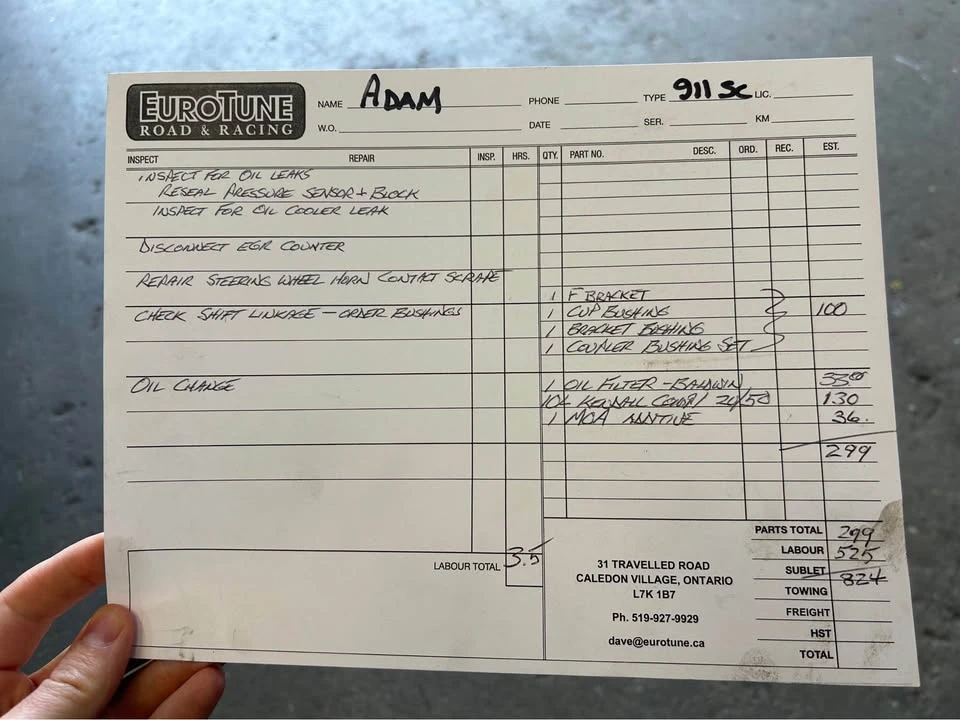 EUROTUNE
ROAD & RACING
NAME ADAM PHONE TYPE 911 SC LIC.
W.O. DATE SER. KM
INSPECT REPAIR INSP. HRS. QTY. PART NO. DESC. ORD. REC. EST.
INSPECT FOR OIL LEAKS
RESEAL PRESSURE SENSOR + BLOCK
INSPECT FOR OIL COOLER LEAK
DISCONNECT EGR COUNTER
REPAIR STEERING WHEEL HORN CONTACT SCRAPE
1 F BRACKET
CHECK SHIFT LINKAGE - ORDER BUSHINGS 1 CUP BUSHING 100
1 BRACKET BUSHING
1 COUPLER BUSHING SET
OIL CHANGE 1 OIL FILTER - BALDWIN 33.00
10L KENDALL 20/50 130
1 MOA 36.
299
PARTS TOTAL 299
LABOUR TOTAL 3.5 LABOUR 525
SUBLET 824
TOWING
FREIGHT
HST
TOTAL
31 TRAVELLED ROAD
CALEDON VILLAGE, ONTARIO
L7K 1B7
Ph. 519-927-9929
dave@eurotune.ca